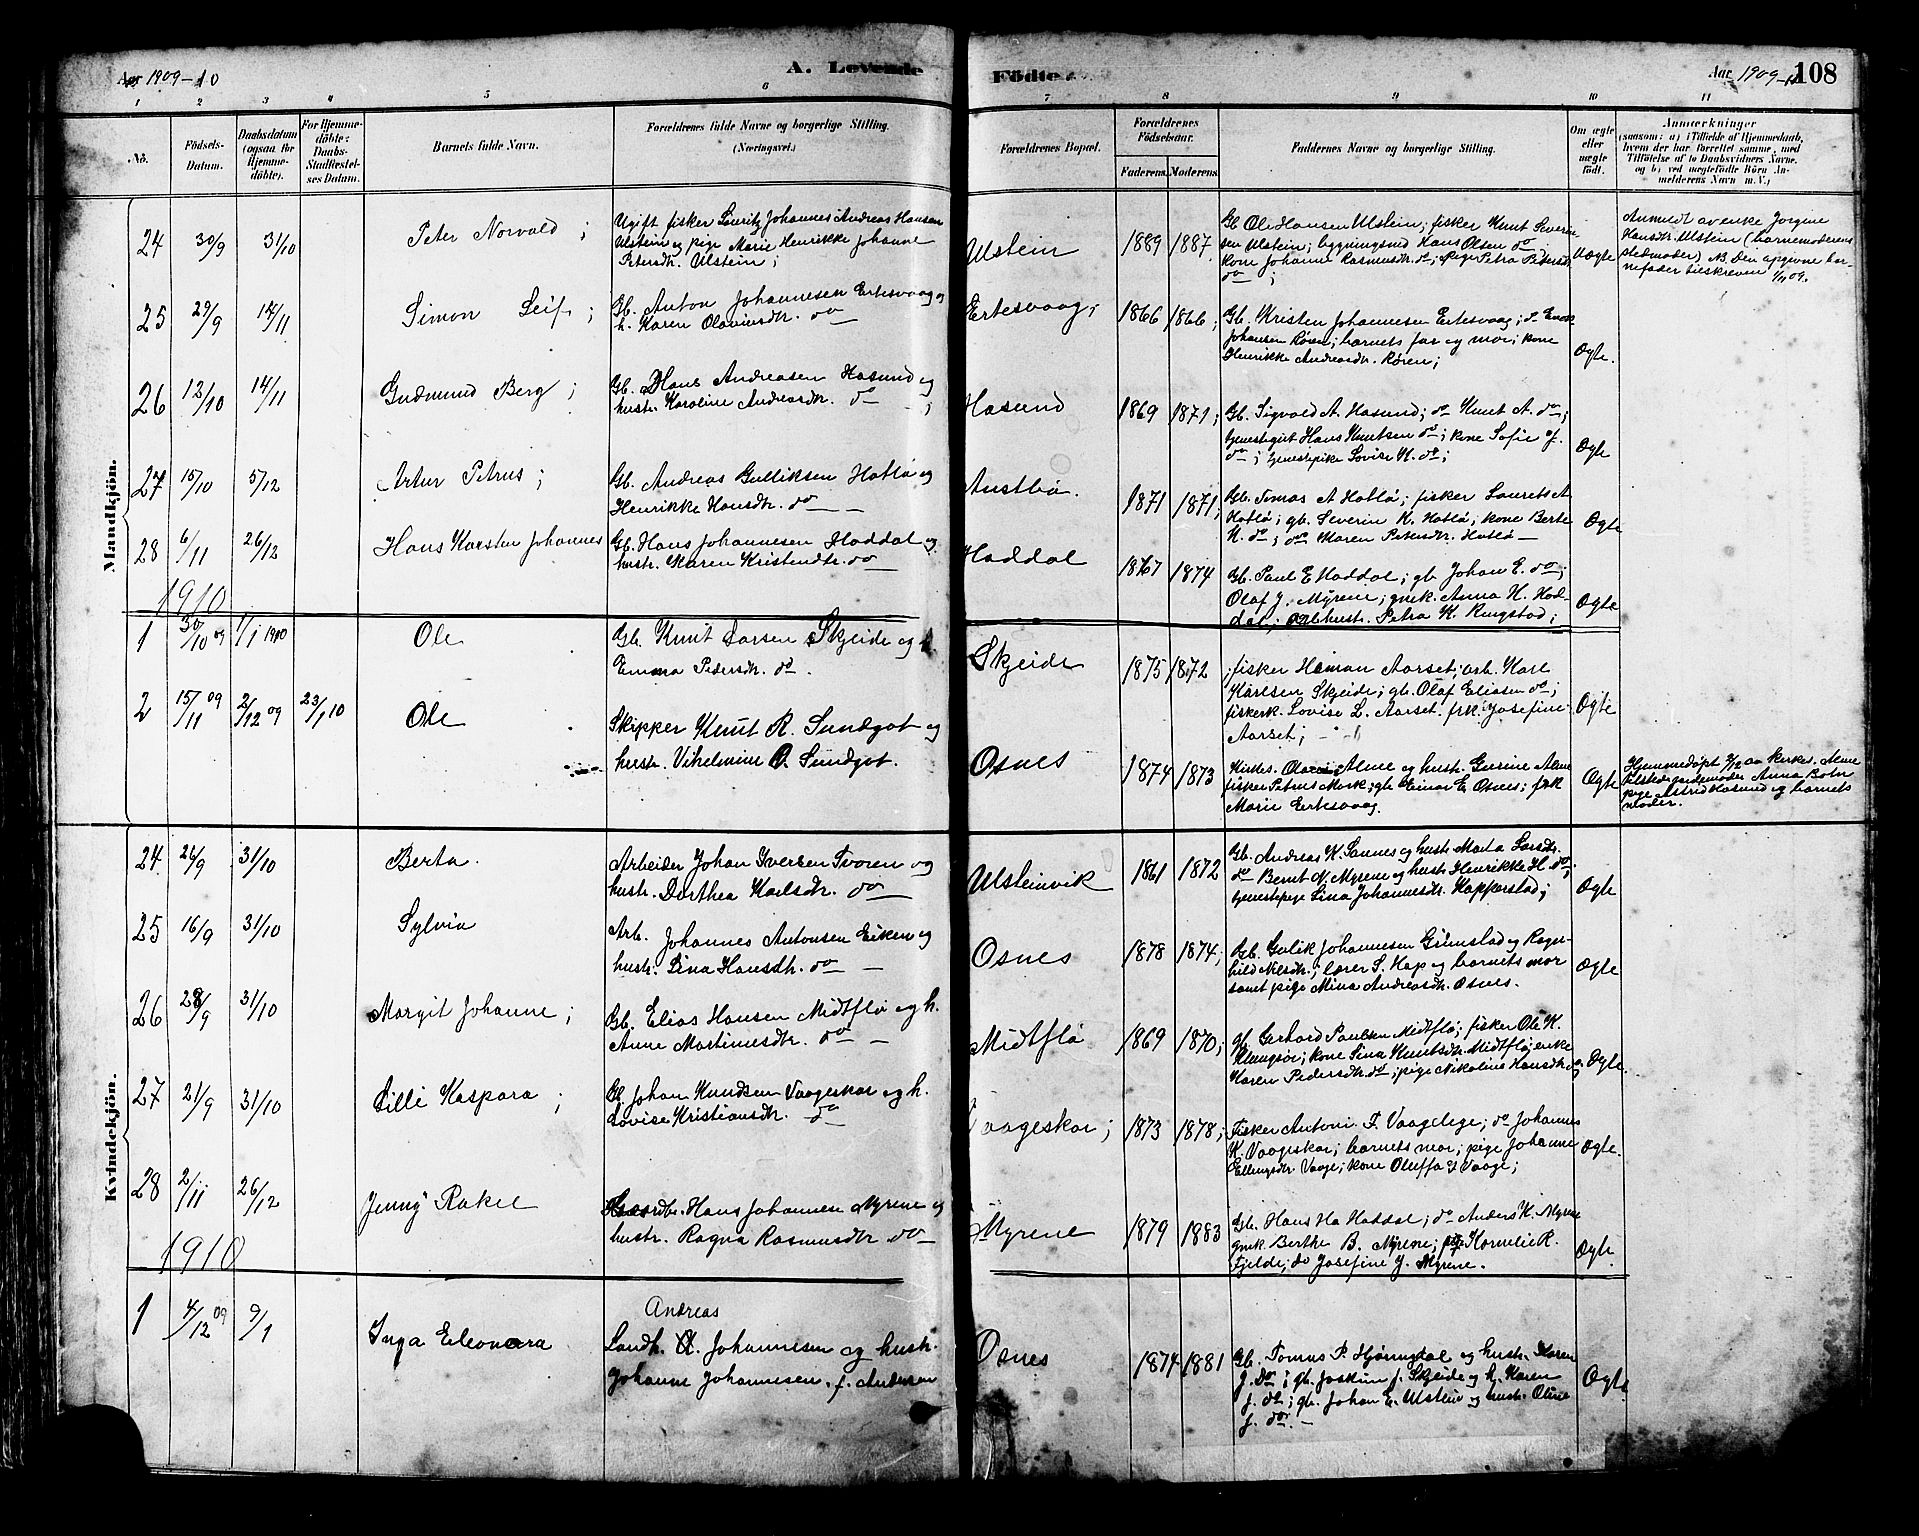 Aar 1909-10
A. Levende
Födte.
Aar 1909-10
108
1 2 3 4 5 6 7 8 9 10 11
No.
Födsels-
Datum.
Daabsdatum
(ogsaa for
Hjemme-
döbte).
For Hjemme-
döbte:
Daabs-
Stadfæstel-
ses Datum.
Barnets fulde Navn.
Forældrenes fulde Navne og borgerlige Stilling.
(Næringsvei.)
Forældrenes Bopæl.
Forældrenes
Födselsaar.
Faderens. Moderens.
Faddernes Navne og borgerlige Stilling.
Om ægte
eller
uægte
født.
Anmærkninger
(saasom: a) i Tilfælde af Hjemmedaab,
hvem der har forrettet samme, med
Tilföielse af to Daabsvidners Navne,
og b) ved uægtefödte Börn An-
melderens Navn m. V.)
Mandkjön.
24 30/9 31/10 Peter Norvald;
Ugift fisker Lauritz Johannes Andreas Hansen
Ulstein og pige Marie Henrikke Johanne
Petersdtr. Ulstein;
Ulstein 1889 1887.
Gb Ole Hansen Ulstein; fisker Knut Severin-
sen Ulstein; bygningsmd Hans Olsen do
kone Johanne Rasmusdtr. do; pige Petra Pedersdtr
do;
Uægte
Anmeldt av enke Jorgine
Hansdtr. Ulstein (barnemoderens
stedmoder) NB. Den opgivne bar-
nefader tilskreven 1/11 09.
25 29/9 14/11 Simon Leif;
Gb. Anton Johannesen Ertesvaag og
h. Karen Olavinsdtr. do
Ertesvaag; 1866 1866;
Gb. Kristen Johannesen Ertesvaag; do
Johansen Røren; barnets far og mor; kone
Henrikke Andreasdtr. Røren;
Ægte.
26 12/10 14/11 Gudmund Berg;
Gb. Hans Andreasen Hasund og
hustr. Karoline Andreasdtr. do;
Hasund 1869 1871;
Gb. Sigvald A. Hasund; do Knut A. do;
tjenestegut Hans Knutsen do; kone Sofie J.
do; tjenestepike Lovise K. do;
Ægte
27 15/10 5/12 Artur Petrus;
Gb. Andreas Gulliksen Hatlø og
Henrikke Hansdtr. do
Austbø. 1871 1871;
Gb. Tomas A Hatlø; fisker Laurits A
Hatlø; gb. Severin K. Hatlø; kone Berte
K. do; do Maren Petersdtr. Hatlø
Ægte
28 6/11 26/12 Hans Karsten Johannes
Gb. Hans Johannesen Haddal og
hustr. Karen Kristendtr. do
Haddal 1867 1874
Gb. Paul E Haddal; gb Johan E. do;
Olaf J. Myrene; gmk. Anna H. Had-
dal; hustr. Petra K. Ringstad;
Ægte
1910
1 30/10 09 1/1 1910 Ole
Gb. Knut Larsen Skjeide og h
Emma Pedersdtr. do.
Skjeide 1875 1872
fisker Haman Aarset; arb. Karl
Karlsen Skjeide; gb. Olaf Eliasen do;
fiskerk. Lovise L. Aarset. frk. Josefine
Aarset;
Ægte
2 15/11 09 2/12 09 23/1 10 Ole
Skipper Knut R. Sundgot og
hustr. Vihelmine O. Sundgot.
Osnes 1874 1873
Alme og hustr. Gurine Alme
fisker Petrus Mork; gb Einar E. Osnes; frk
Marie Ertesvaag.
Ægte
Hjemmedøpt 2/12 av kirkes. Alme
Tilstede: Anna Botn
pige Astrid Hasund og barnets
moder.
Kvindekjön.
24. 26/9 31/10 Berta.
Arbeider Johan Iversen Tvoren og
hustr. Dorthea Karlsdtr. do
Ulsteinvik 1861 1872
Gb. Andreas K. Sannes og hustr Marta Larsdtr.
do Bernt N. Myrene og hustr Henrikke H. do;
tjenestepige Lina Johannesdtr. Kopperstad;
Ægte
25 16/9 31/10 Sylvia
Arb. Johannes Antonsen Eiken og
hustr. Lina Hansdtr. do
Osnes 1878 1874;
Gb. Gulik Johannesen Grimstad og Ragn-
hild Nilsdtr; lærer S. Hap og barnets mor
samt pige Mina Andreasdtr. Osnes.
Ægte
26 28/9 31/10 Margit Johanne;
Gb. Elias Hansen Midtflø og h.
Anne Martinusdtr. do
Midtflø 1869 1870;
gb. Gerhard Paulsen Midtflø; fisker Ole K.
Klungsør; kone Lina Knutsdtr. Midtflø; enke
Karen Pedersdtr. do; pige Nikoline Hansdtr. do
Ægte.
27 21/9 31/10 Lilli Kaspara;
Gb. Johan Knudsen Vaageskar og h.
Lovise Kristiansdtr. do
Vaageskar; 1873 1878;
Fisker Antoni F. Vaagelege; do Johannes
K. Vaageskar; barnets mor; pige Johanne
Ellingsdtr. Vaage; kone Oluffa Vaage;
Ægte.
28 2/11 26/12 Jenny Rakel
Gaardbr. Hans Johannesen Myrene og
hustr. Ragna Rasmusdtr do
Myrene 1879 1883
Gb. Hans Ha Haddal; do Anders K. Myrene
gmk. Berthe B. Myrene; pige Kornelie R.
Fjelde; do Josefine J. Myrene.
Ægte.
1910
1 4/12 09 9/1 Inga Eleonora
Andreas
Landh. A. Johannesen og hustr.
Johanne Johannesen. f. Andersen
Osnes 1874 1881
Gb. Tomas P. Hjørungdal og hustr. Karen
J. do; gb. Joakim J. Skjeide og h. Karen
J. do; gb. Johan E. Ulstein og hustr. Oline
J. do.
Ægte.